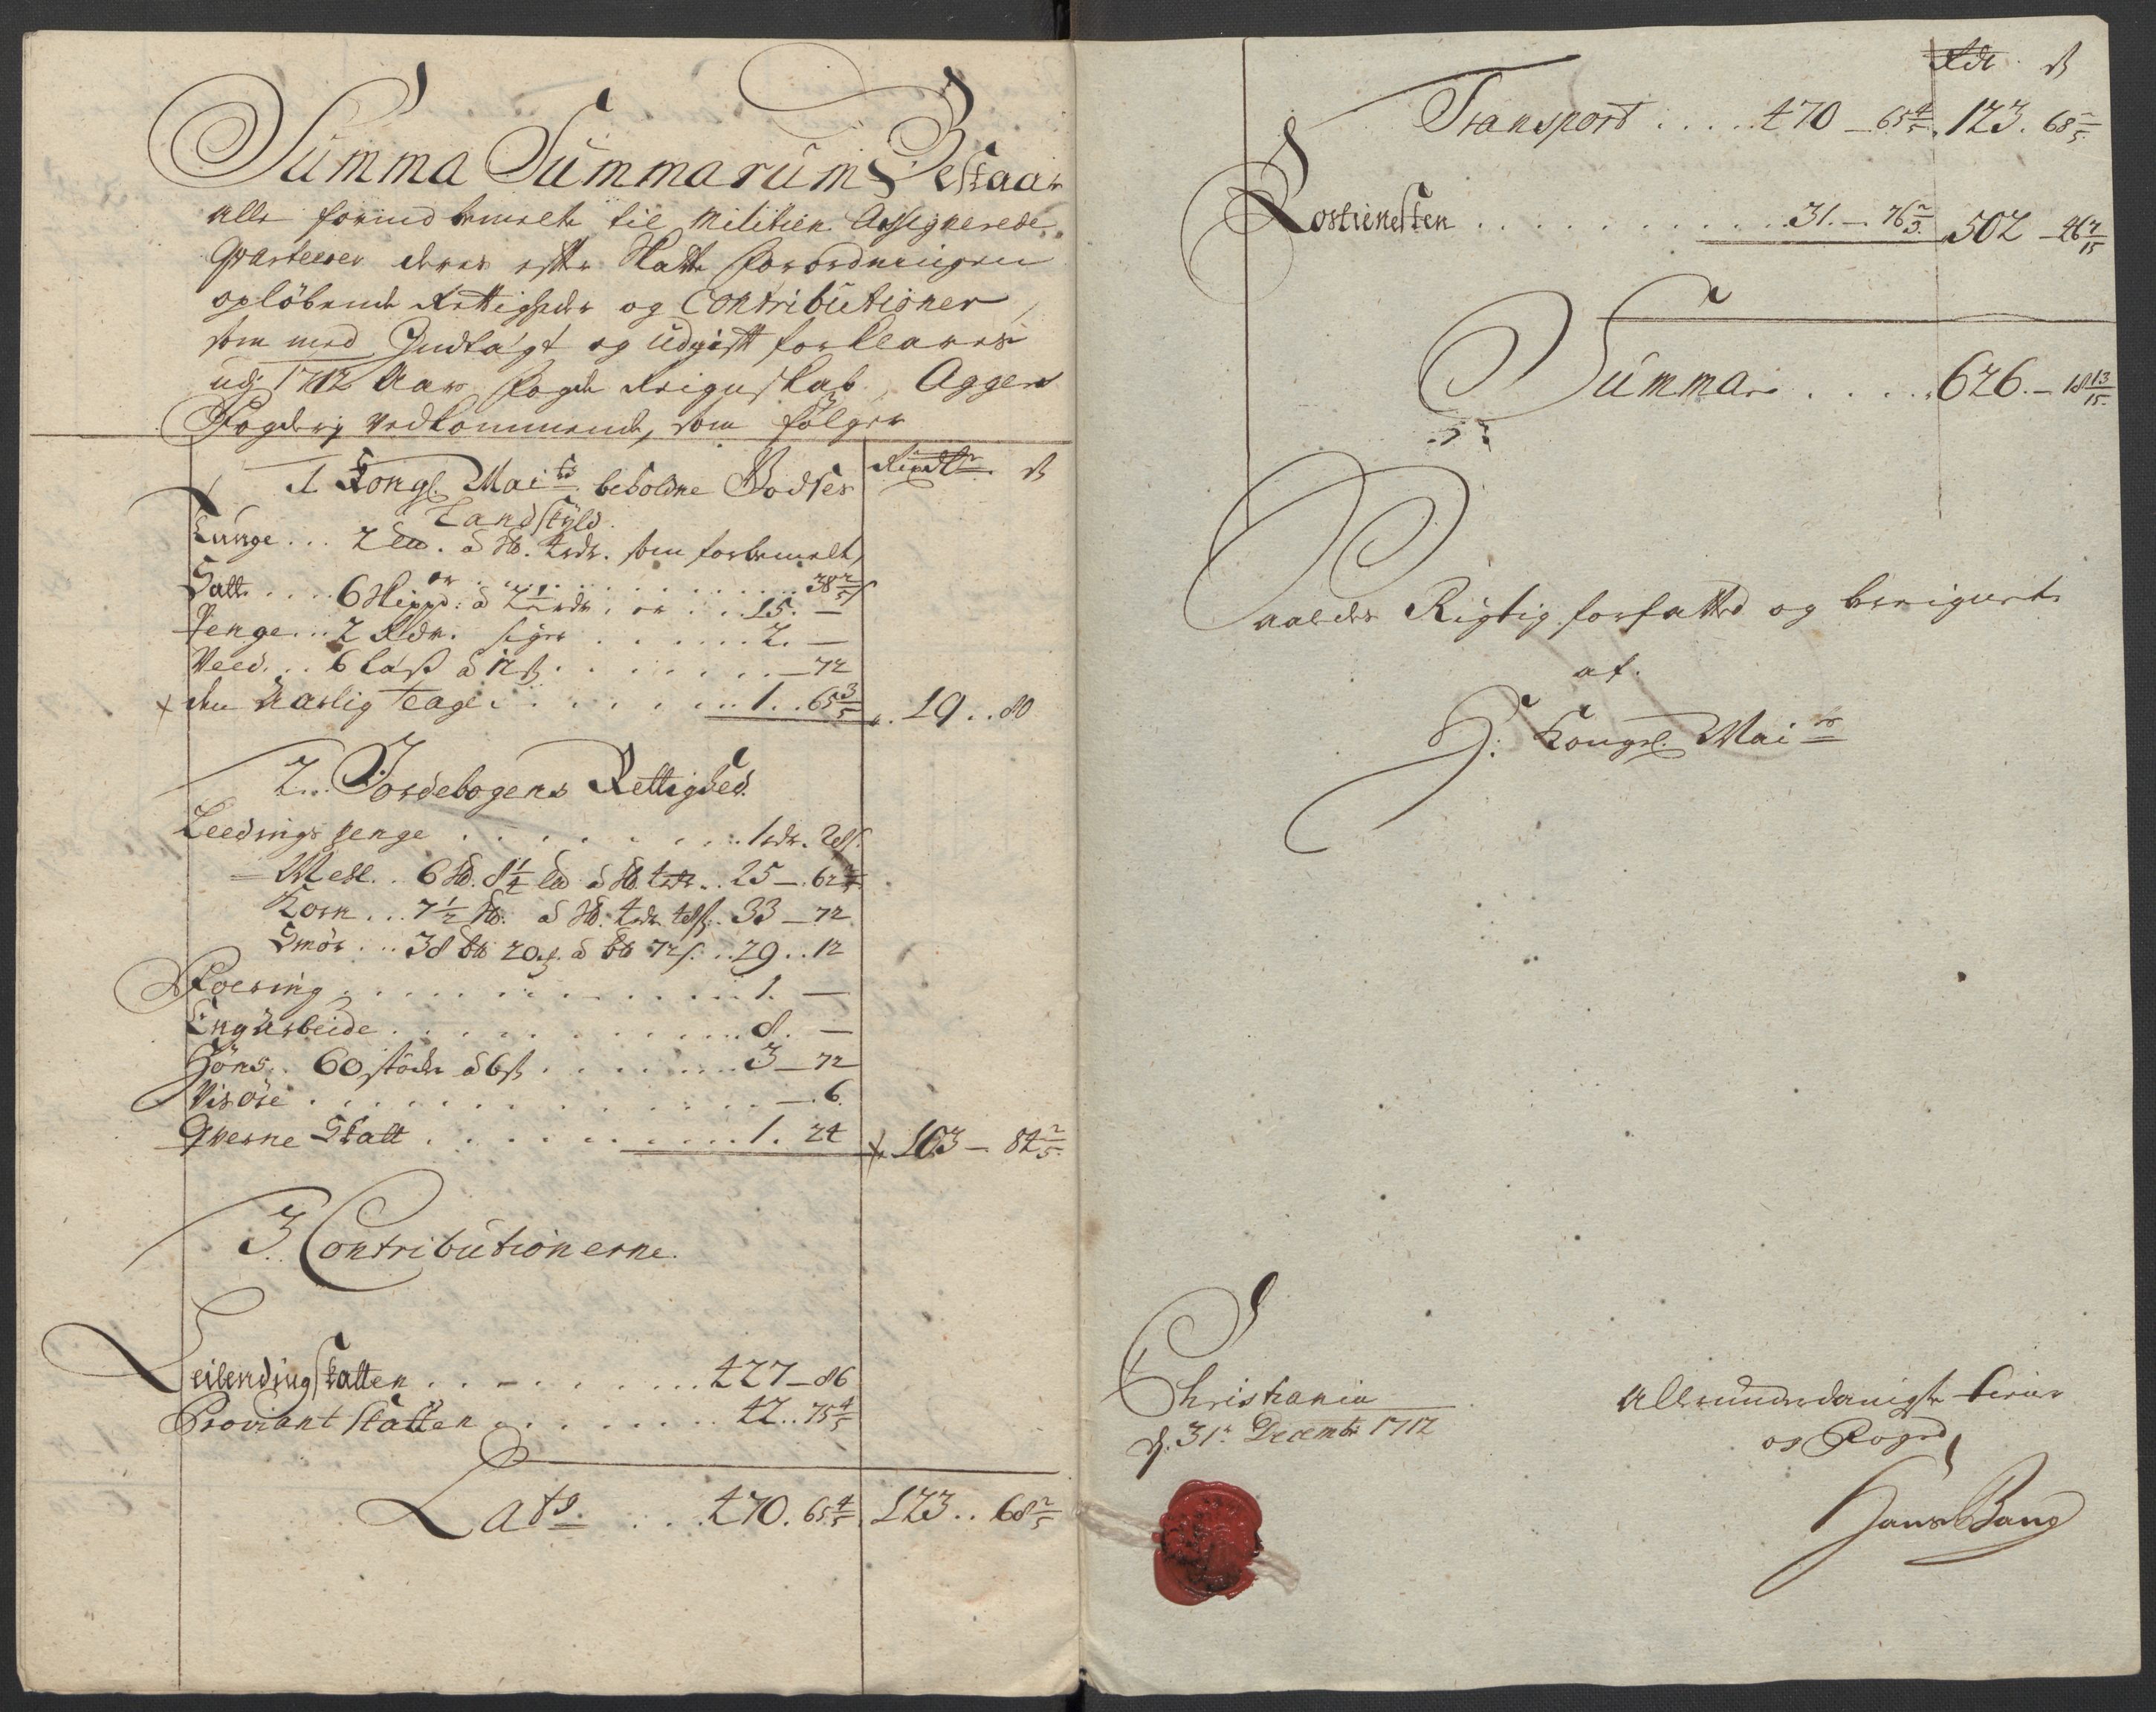 Summa Summarum Bestaar
alle forindbemelte til Militien Assignerede
Qvarteerer deres efter Skatte Forordningen
opløbende Rettigheder og Contributioner,
som med Indtægt og Udgift forklares
udj 1712 Aars Fogde Reigenskab, Agger
Fogderj vedkommende, som følger
Rixdlr ß
1 Kongl. Maits beholdne Godses
Landskyld
Tunge ... 2 Lid. à Sk. 4 rdr. som forbemelt,
er ... 38 2/5 ß
Salt .... 6 Skippd: à 2 1/2 rdr. er ... 15. —
Penge ... 2 Rdr. siger ... 2. —
Veed ... 6 Læs à 12 ß ... — 72
den Aarlig Tage ... 1 .. 65 3/5 .. 19 .. 80
2. Jordebogens Rettighed.
Leedings penge ... 1 rdr. 28 ß.
— Meel .. 6 Sk. 8 1/4 Lid à Sk. 4 rdr .. 25 — 62 2/5
Korn ... 7 1/2 Sk. à Sk. 4 rdr 48 ß .. 33 — 72
Smør ... 38 bk 20 à bk 72 ß ... 29 .. 12
Foering ... 1. —
Engarbeide ... 8. —
Høns .. 60 støcher à 6 ß ... 3 — 72
Visøre ... — 6.
Qverne Skatt ... 1. 24 103 — 84 2/5
3. Contributionerne.
Leilendingskatten ... 427 — 86
Proviant skatten ... 42 .. 75 4/5
Lats. ... 470. 65 4/5. 123 .. 68 2/5
Rdr ß
Transport .... 470 — 65 4/5. 123. 68 2/5
Rostienesten ... 31. — 76 2/3. 502 — 46 7/15
Summa ..... 626. — 18 13/15
Saaledes Rigtig forfatted og beregnet
af.
H: Kongel. Maits
Christiania
d. 31te Decembr 1712
Allerunderdanigste tiener
og Foged
Hans Bang